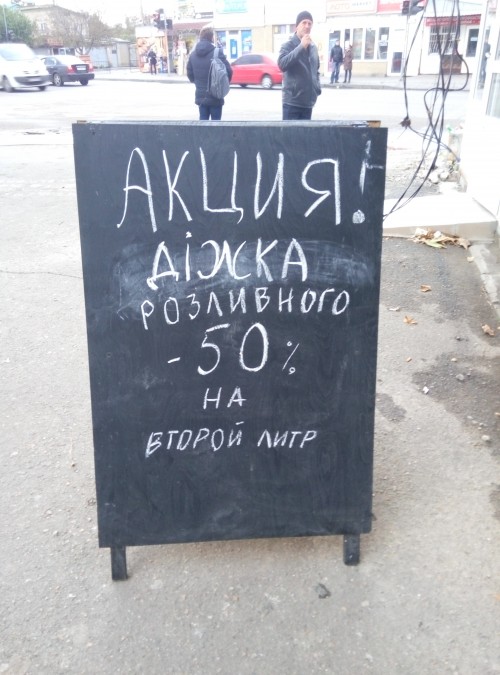 АКЦИЯ!
ДІЖКА
РОЗЛИВНОГО
-50%
НА
ВТОРОЙ ЛИТР